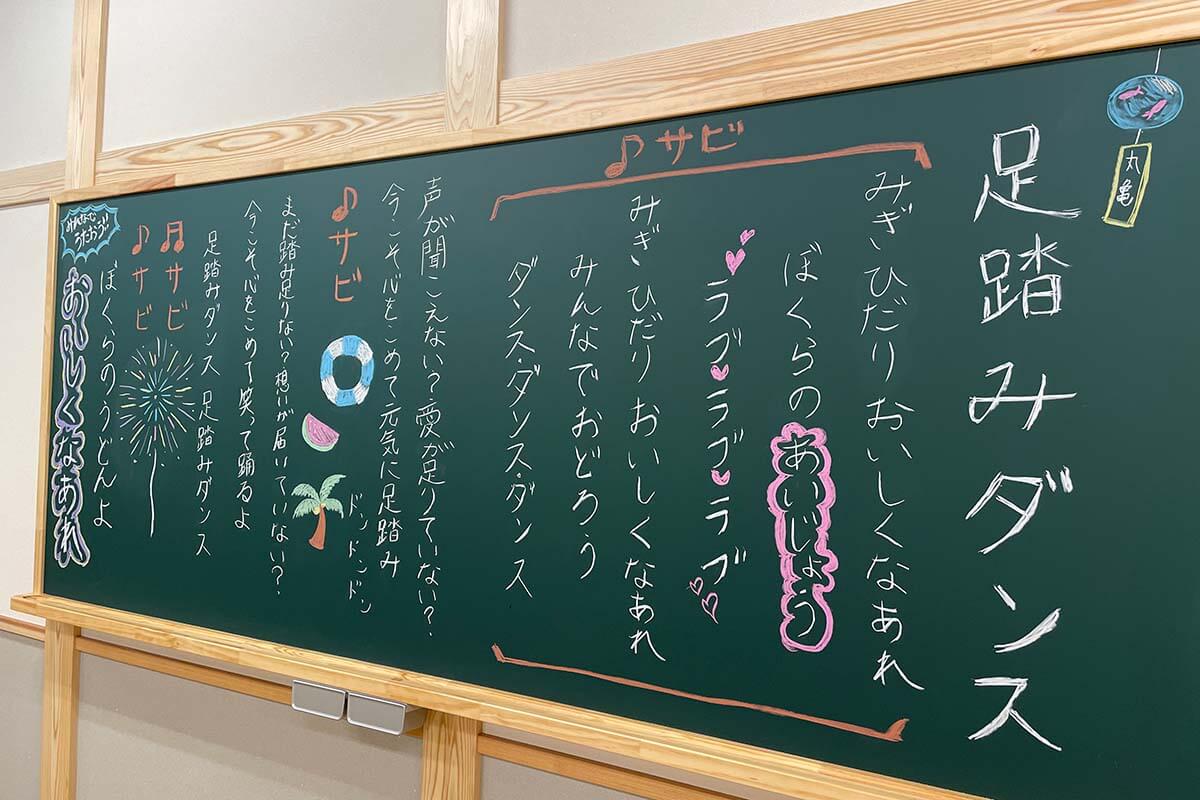 丸亀
足踏みダンス
♪サビ
みぎ ひだり おいしくなあれ
ぼくらの あいじょう
ラブ ラブ ラブ
みぎ ひだり おいしくなあれ
みんなでおどろう
ダンス・ダンス・ダンス
声が聞こえない?愛が足りていない?
今こそ心をこめて元気に足踏み
ドン ドン ドン
♪サビ
まだ踏み足りない?想いが届いていない?
今こそ心をこめて笑って踊るよ
足踏みダンス 足踏みダンス
♬サビ
♪サビ
ぼくらのうどんよ
みんなで
うたおう!
おいしくなあれ